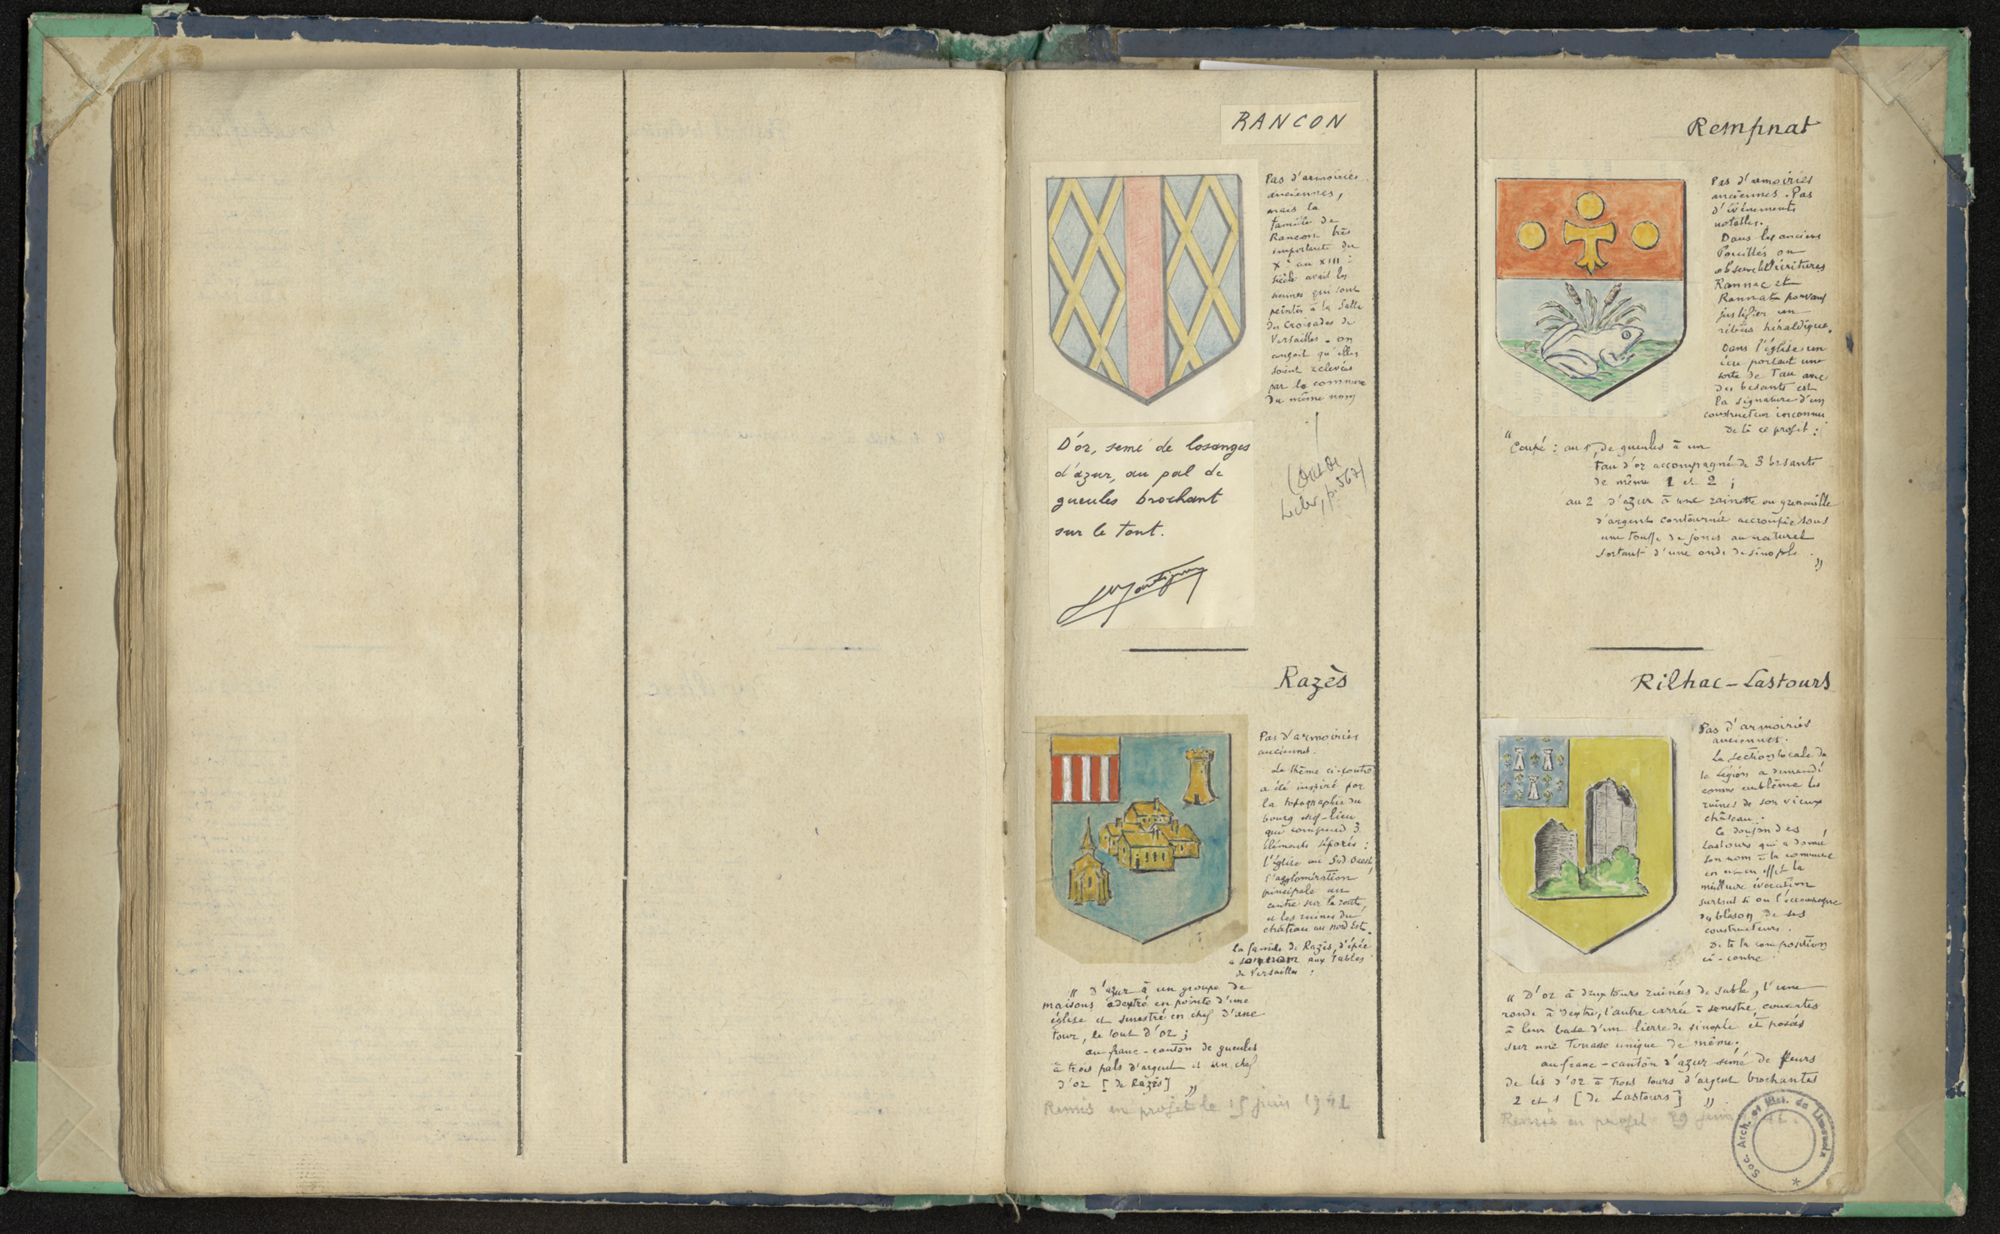 RANCON
Pas d'armoiries
anciennes,
mais la
famille de
Rancon très
importante du
X° au XIII°
siècle avait les
siennes qui sont
peintes à la Salle
des Croisades de
Versailles. On
conçoit qu'elles
soient relevées
par la commune
du même nom
D'or, semé de losanges
d'azur, au pal de
gueules brochant
sur le tout.
Razès
Pas d'armoiries
anciennes.
Le thème ci-contre
a été inspiré par
la topographie du
bourg chef-lieu
qui comprend 3
éléments séparés :
l'église au Sud Ouest,
l'agglomération
principale au
centre sur la route,
et les ruines du
château au Nord Est.
La famille de Razès, d'épée
a son nom aux Tables
de Versailles :
" D'azur à un groupe de
maisons adextré en pointe d'une
église et senestré en chef d'une
tour, le tout d'or ;
au franc-canton de gueules
à trois pals d'argent et un chef
d'or [de Razès] "
Remis en projet le 15 juin 1942
Rempnat
Pas d'armoiries
anciennes. Pas
d'événements
notables.
Dans les anciens
Pouillés on
observe les écritures
Rannac et
Rannat pouvant
justifier un
rébus héraldique.
Dans l'église un
écu portant une
sorte de Tau avec
des besants est
la signature d'un
constructeur inconnu
de là ce projet :
" Coupé : au 1, de gueules à un
Tau d'or accompagné de 3 besants
de même 1 et 2 ;
au 2 d'azur à une rainette ou grenouille
d'argent contournée accroupie sous
une touffe de joncs au naturel
sortant d'une onde de sinople. "
Rilhac-Lastours
Pas d'armoiries
anciennes.
La section locale de
la Légion a demandé
comme emblème les
ruines de son vieux
château.
Ce donjon des
Lastours qui a donné
son nom à la commune
en est en effet la
meilleure évocation
surtout si on l'accompagne
du blason de ses
constructeurs.
De là la composition
ci-contre :
" D'or à deux tours ruinées de sable, l'une
ronde à dextre, l'autre carrée à senestre, couvertes
à leur base d'un lierre de sinople et posées
sur une terrasse unique de même ;
au franc-canton d'azur semé de fleurs
de lis d'or à trois tours d'argent brochantes
2 et 1 [de Lastours] ".
Remis en projet 29 juin
Soc. Arch. et Hist. du Limousin